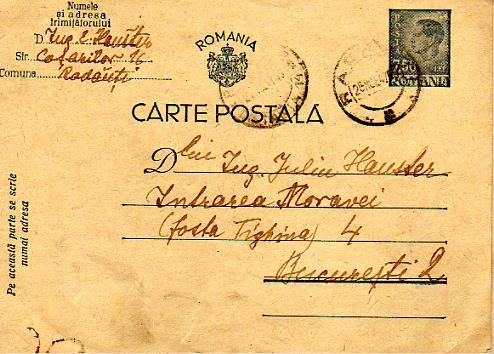 Numele
și adresa
trimițătorului
D. Ing. E. Hauster
Str. Cosarilor 16
Comuna Radauți
ROMANIA
POSTA
7.50
ROMANIA
CARTE POSTALĂ
Dlui Ing. Juliu Hauster
Intrarea Moravei
(fosta Tighina) 4
București 2
Pe această parte se scrie
numai adresa